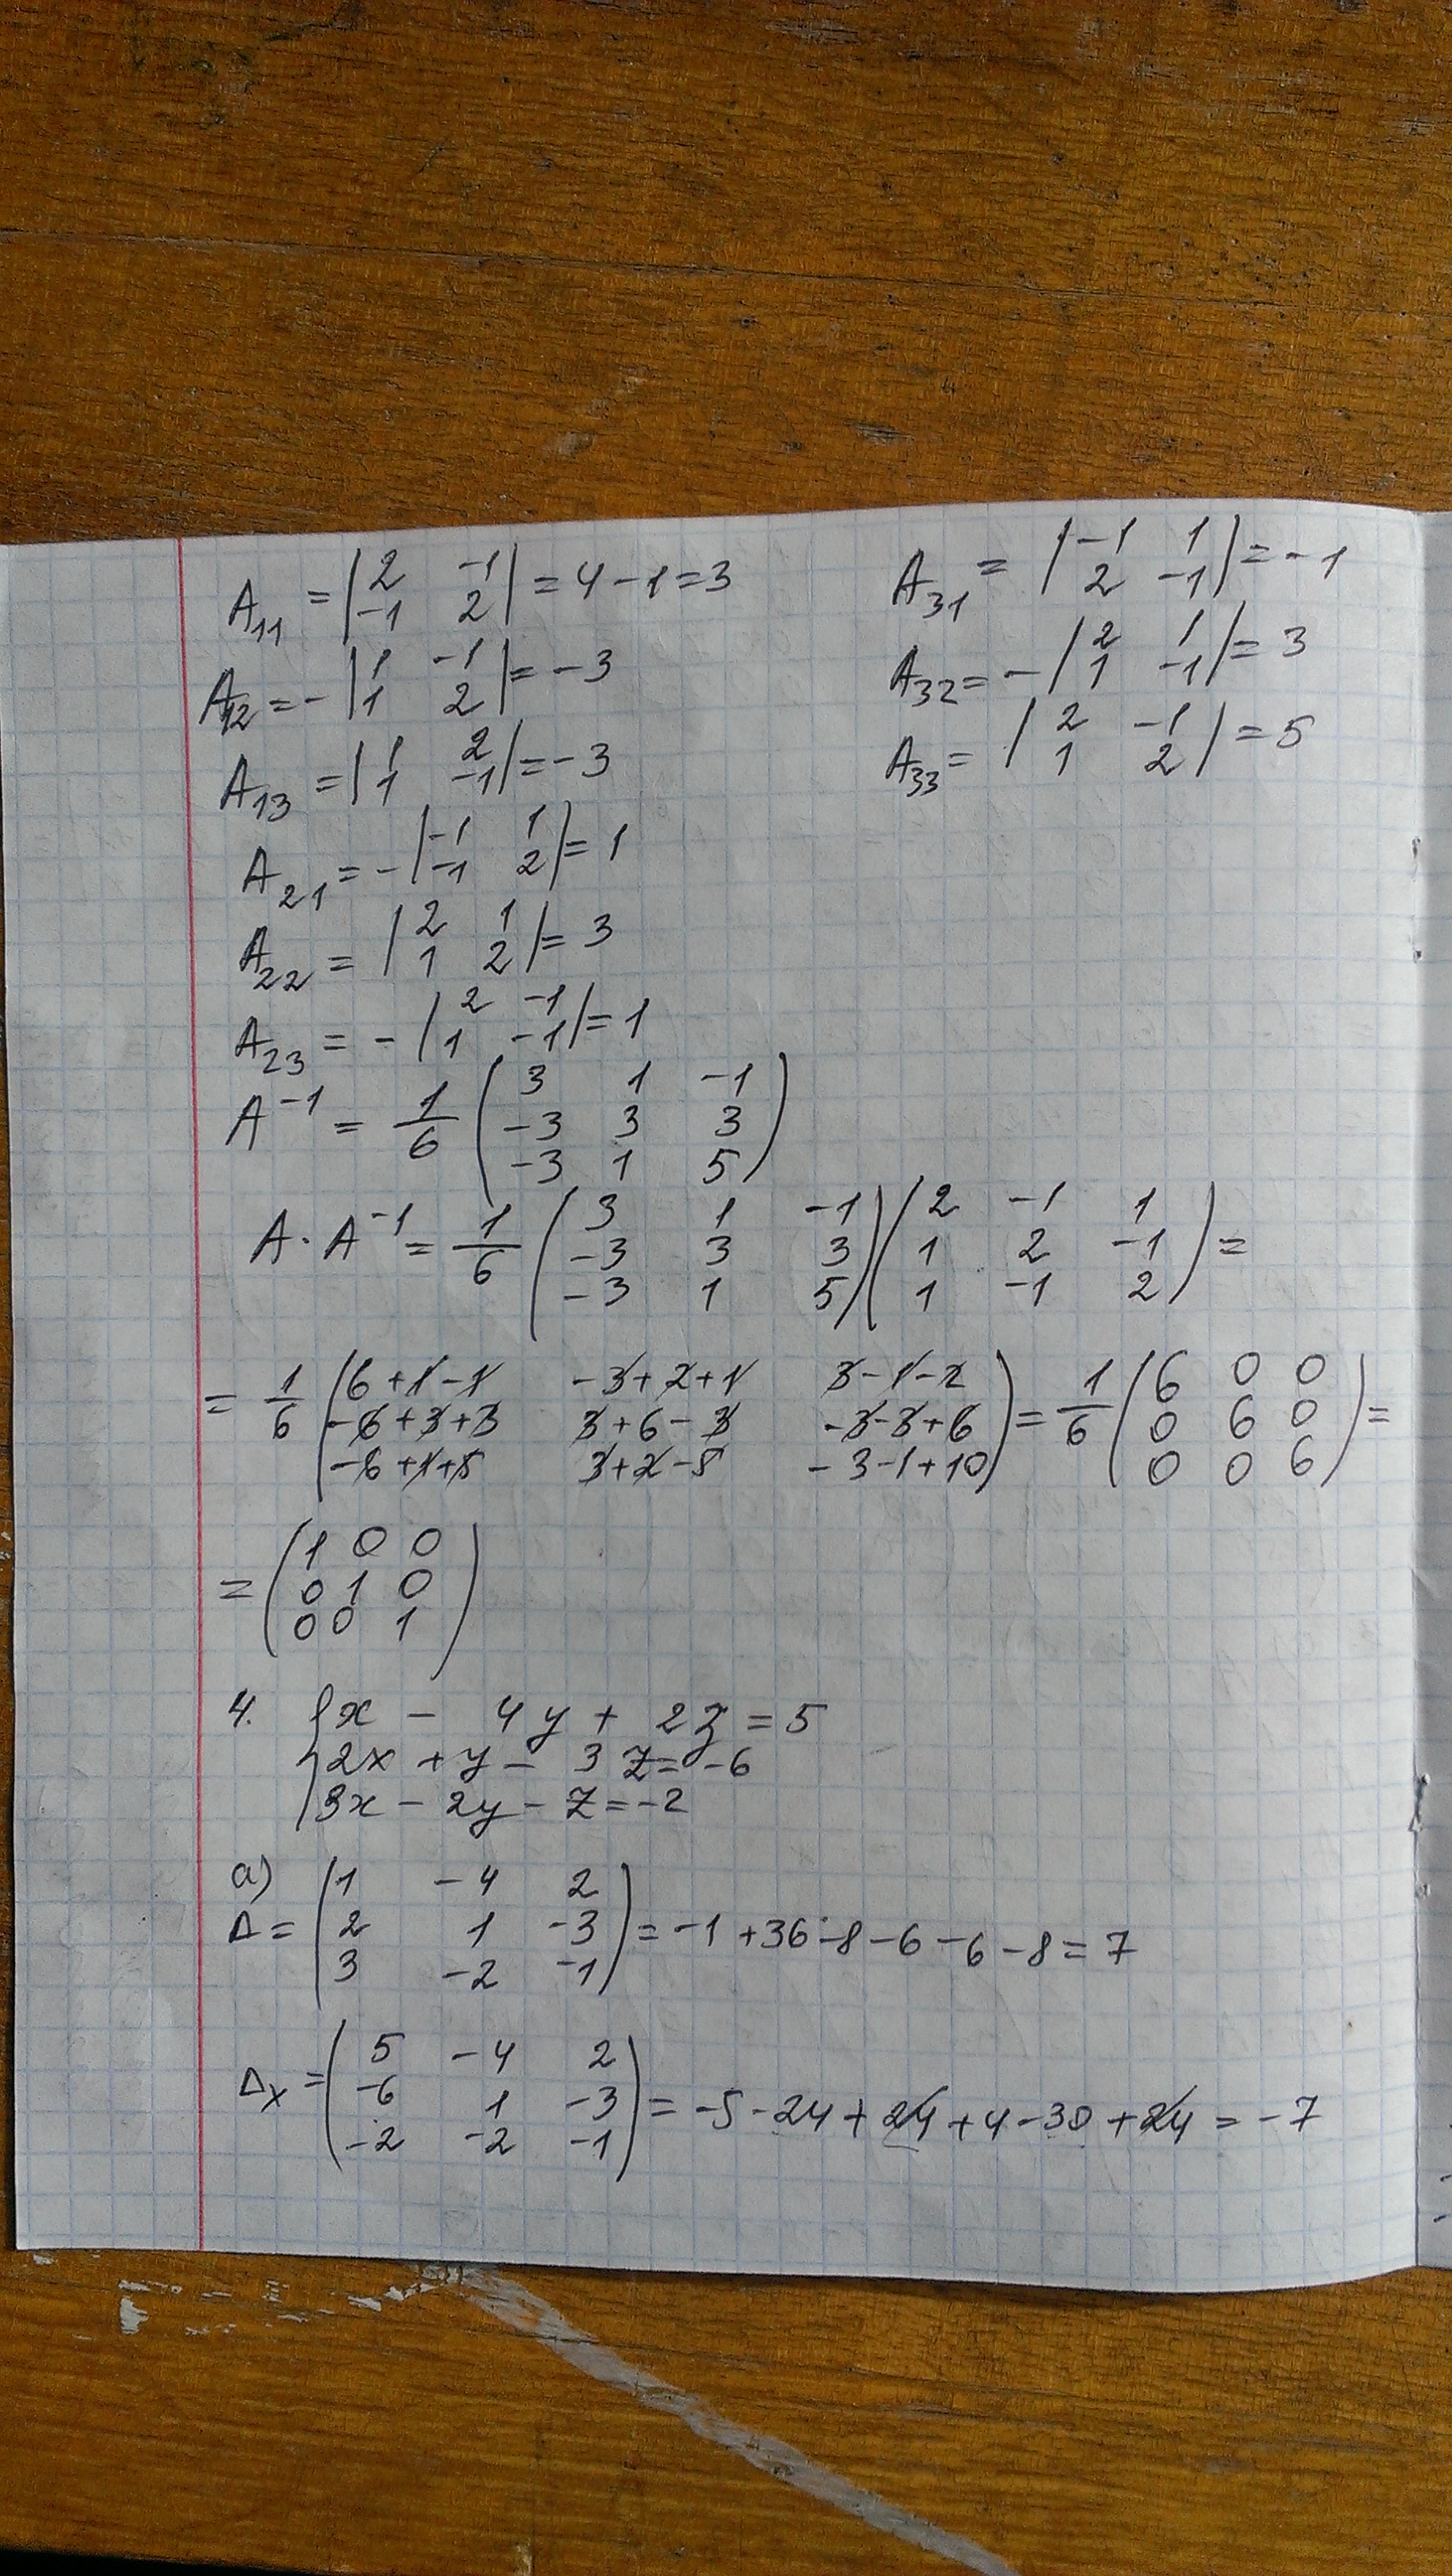 A₁₁ = |2 -1; -1 2| = 4 - 1 = 3
A₁₂ = - |1 -1; 1 2| = -3
A₁₃ = |1 2; 1 -1| = -3
A₂₁ = - |-1 1; -1 2| = 1
A₂₂ = |2 1; 1 2| = 3
A₂₃ = - |2 -1; 1 -1| = 1
A₃₁ = |-1 1; 2 -1| = -1
A₃₂ = - |2 1; 1 -1| = 3
A₃₃ = |2 -1; 1 2| = 5
A⁻¹ = 1/6 (3 1 -1; -3 3 3; -3 1 5)
A · A⁻¹ = 1/6 (3 1 -1; -3 3 3; -3 1 5) (2 -1 1; 1 2 -1; 1 -1 2) =
= 1/6 (6+1-1 -3+2+1 3-1-2; -6+3+3 3+6-3 -3-3+6; -6+1+5 3+2-5 -3-1+10) = 1/6 (6 0 0; 0 6 0; 0 0 6) =
= (1 0 0; 0 1 0; 0 0 1)
4. { x - 4y + 2z = 5
2x + y - 3z = -6
3x - 2y - z = -2
a)
Δ = (1 -4 2; 2 1 -3; 3 -2 -1) = -1 + 36 - 8 - 6 - 6 - 8 = 7
Δx = (5 -4 2; -6 1 -3; -2 -2 -1) = -5 - 24 + 24 + 4 - 30 + 24 = -7